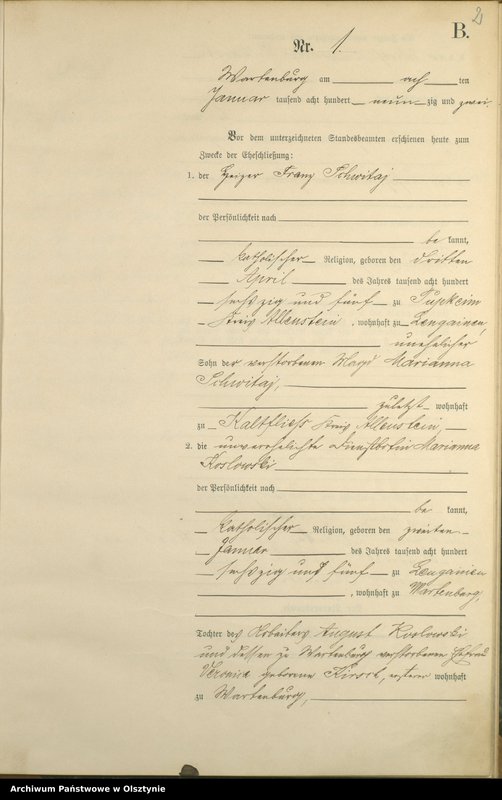 2
B.
Nr. 1.
Wartenburg am acht ten
Januar tausend acht hundert neun zig und zwei.
Vor dem unterzeichneten Standesbeamten erschienen heute zum
Zwecke der Eheschließung:
1. der Heizer Franz Schwitaj
der Persönlichkeit nach
be kannt,
katholischer Religion, geboren den dritten
April des Jahres tausend acht hundert
sechzig und fünf zu Pupkeim
Kreis Allenstein, wohnhaft zu Lengainen,
unehelicher
Sohn der verstorbenen Magd Marianna
Schwitaj,
zuletzt wohnhaft
zu Kaltfliess Kreis Allenstein,
2. die unverehelichte Dienstbotin Marianna
Koslowski
der Persönlichkeit nach
be kannt,
katholischer Religion, geboren den zweiten
Januar des Jahres tausend acht hundert
sechzig und fünf zu Lengainen
, wohnhaft zu Wartenburg,
Tochter des Arbeiters August Koslowski
und dessen zu Wartenburg verstorbenen Ehefrau
Veronica geborene, ersterer wohnhaft
zu Wartenburg,
Archiwum Państwowe w Olsztynie